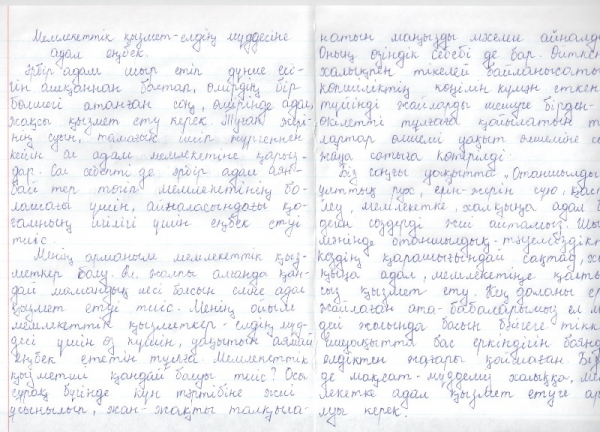 Мемлекеттік қызмет - елдің мүддесіне
адал еңбек.
Әрбір адам шыр етіп дүние есі-
гін ашқаннан бастап, өмірдің бір
бөлшегі атанған соң, өмірінде адал,
жақсы қызмет ету керек. Туған жері-
нің суын, тамағын ішіп жүргеннен
кейін ол адам мемлекетіне қарыз-
дар. Сол себепті де әрбір адам аян-
бай тер төгіп мемлекетінің бо-
лашағы үшін, айналасындағы қо-
ғамның игілігі үшін еңбек етуі
тиіс.
Менің арманым мемлекеттік қыз-
меткер болу. Ал жалпы алғанда қан-
дай мамандық иесі болсын елге адал
қызмет етуі тиіс. Менің ойым
мемлекеттік қызметкер - елдің мүд-
десі үшін өз күшін, уақытын аямай
еңбек ететін тұлға. Мемлекеттік
қызметші қандай болуы тиіс? Осы
сұрақ бүгінде күн тәртібіне жиі
ұсынылып, жан-жақты талқыла-
натын маңызды мәселе айналды
Оның өзіндік себебі де бар. Өйткені
халықпен тікелей байланысаты
көпшіліктің көңілін күпті еткен
түйінді жайларды шешуге бірден-
өкілетті тұлғаға қойылатын т
лаптар өлшемі уақыт өлшеміне са
жаңа сатыға көтерілді.
Біз соңғы уақытта „Отаншылды
ұлттық рух, ерін-жерін сүю, қас
леу, мемлекетке, халқыңа адал
деген сөздерді жиі айтамыз. Шы
мәнінде отаншылдық - тәуелсіздікті
көздің қарашығындай сақтад, х
қыңа адал, мемлекетіңе қалты
сыз қызмет ету. Кең даланы ер
жайлаған ата-бабаларымыз ел м
десі жолында басын бәйгеге тікк
шешуақытта бас еркіндігін баянд
елдіктен жоғары қоймаған. Бір
де мақсат-мүддеміз халыққа, мем
лекетке адал қызмет етуге ар
луы керек.